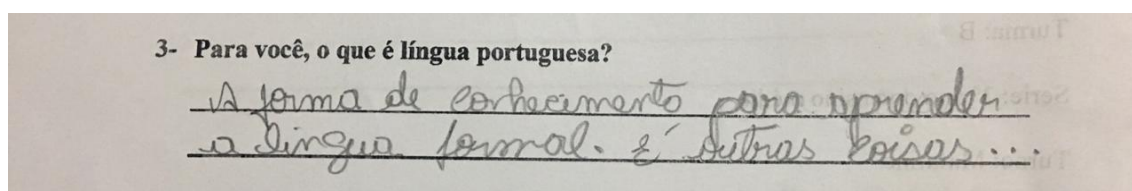 3- Para você, o que é língua portuguesa?
A forma de conhecimento para aprender
a língua formal. É outras coisas...
Turma: B